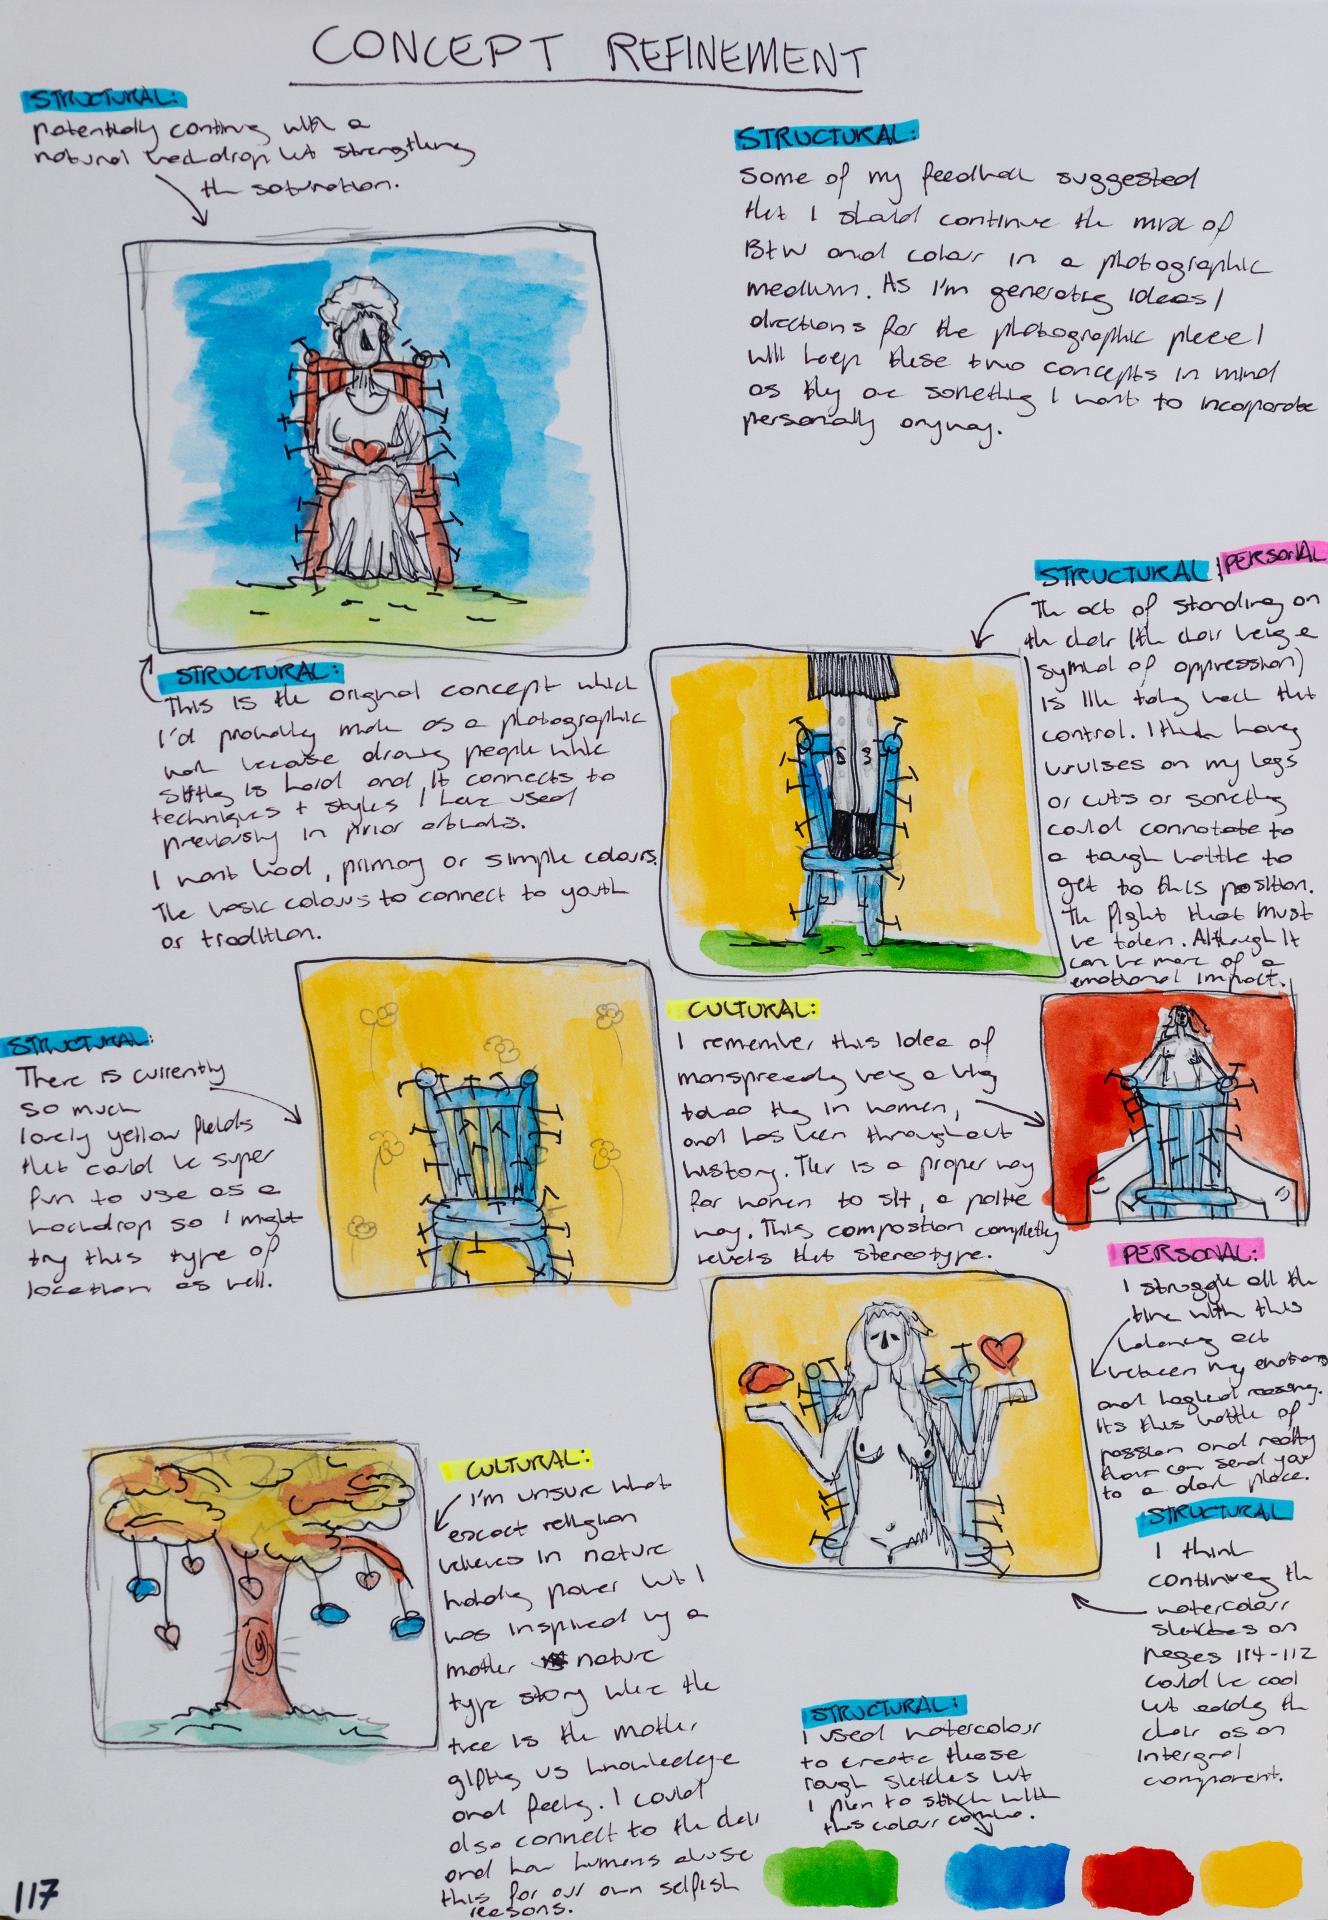 CONCEPT REFINEMENT
STRUCTURAL:
potentially continuing with a
natural backdrop but strengthening
the saturation.
STRUCTURAL:
Some of my feedback suggested
that I should continue the mix of
B+W and colour in a photographic
medium. As I'm generating ideas/
directions for the photographic piece I
will keep these two concepts in mind
as they are something I want to incorporate
personally anyway.
STRUCTURAL:
This is the original concept which
I'd probably make as a photographic
work because drawing people while
sitting is hard and it connects to
techniques + styles I have used
previously in prior artworks.
I want bold, primary or simple colours.
The basic colours to connect to youth
or tradition.
STRUCTURAL / PERSONAL
The act of standing on
the chair (the chair being a
symbol of oppression)
is like taking back that
control. I think having
bruises on my legs
or cuts or something
could connotate to
a tough battle to
get to this position.
The fight that must
be taken. Although it
can be more of a
emotional impact.
STRUCTURAL:
There is currently
so much
lovely yellow fields
that could be super
fun to use as a
backdrop so I might
try this type of
location as well.
CULTURAL:
I remember this idea of
manspreading being a big
taboo thing in women,
and has been throughout
history. Ther is a proper way
for women to sit, a polite
way. This compostion completely
rebels that stereotype.
PERSONAL:
I struggle all the
time with this
balancing act
between my emotions
and logical reasoning.
Its this battle of
passion and reality
that can send you
to a dark place.
STRUCTURAL
I think
continuing the
watercolour
sketches on
pages 114-112
could be cool
but adding the
chair as an
intergral
component.
CULTURAL:
I'm unsure what
exact religion
believes in nature
holding power but I
was inspired by a
mother nature
type story where the
tree is the mother
gifting us knowledge
and feeling. I could
also connect to the
and how humans abuse
this for our own selfish
reasons.
STRUCTURAL:
I used watercolour
to create these
rough sketches but
I plan to stick with
this colour combo.
117